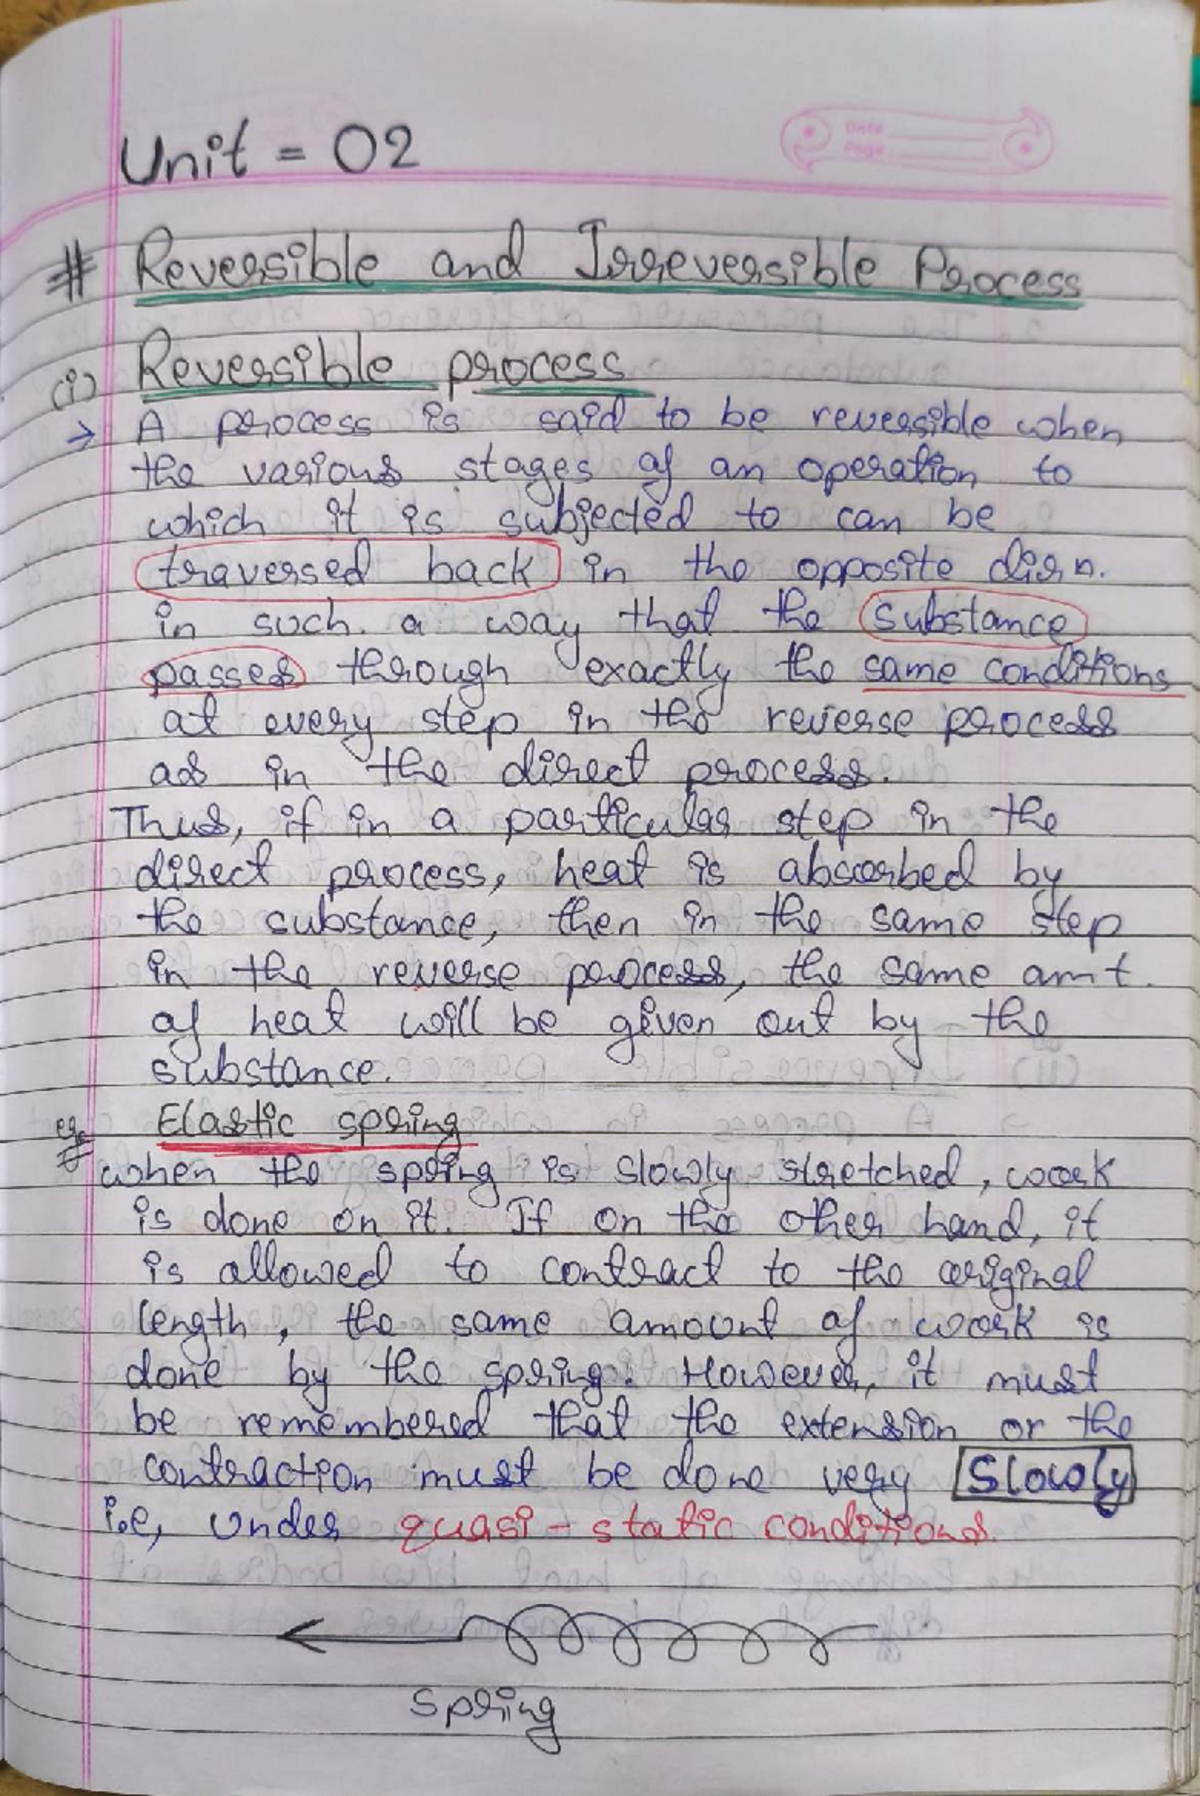 Unit = 02
Date
Page
# Reversible and Irreversible Process
(i) Reversible process
→ A process is said to be reversible when
the various stages of an operation to
which it is subjected to can be
traversed back in the opposite dirn.
in such a way that the substance
passes through exactly the same conditions
at every step in the reverse process
as in the direct process.
Thus, if in a particular step in the
direct process, heat is absorbed by
the substance, then in the same step
in the reverse process, the same amt.
of heat will be given out by the
substance.
eg. Elastic spring
when the spring is slowly stretched, work
is done on it. If on the other hand, it
is allowed to contract to the original
length, the same amount of work is
done by the spring. However, it must
be remembered that the extension or the
contraction must be done very Slowly
i.e, under quasi-static conditions.
spring